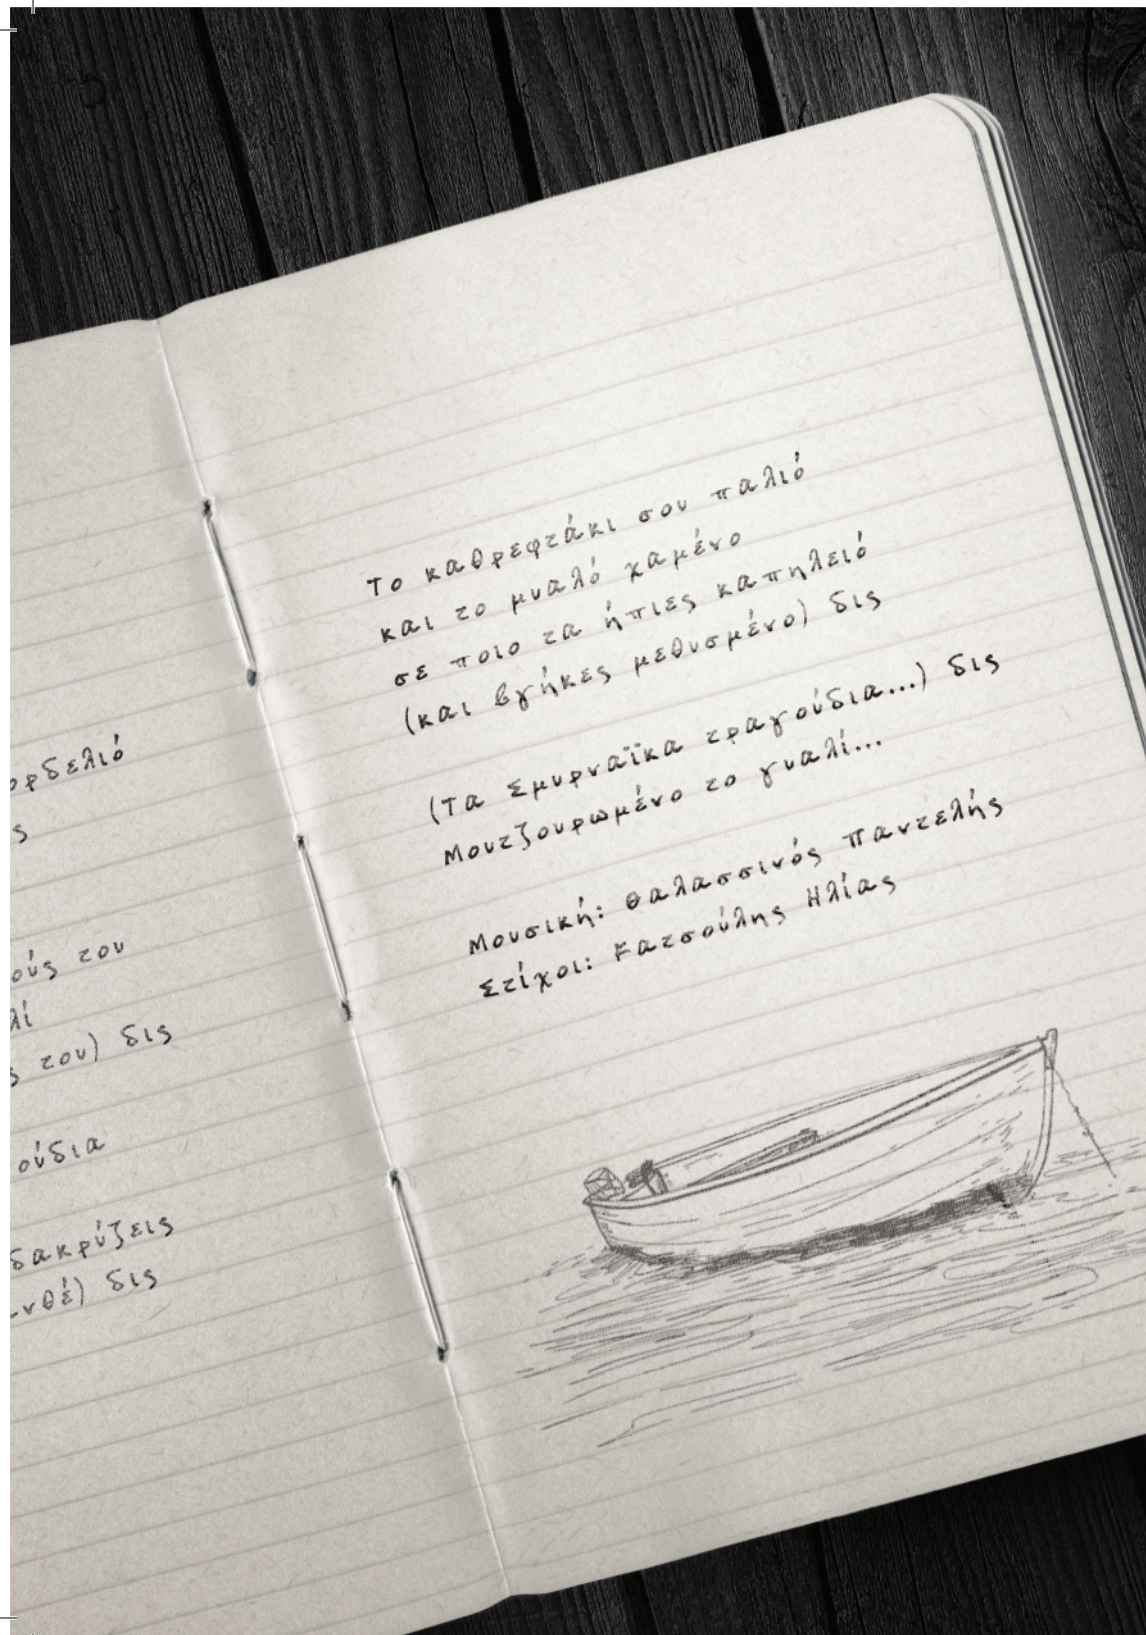 ορδελιό
ς
ούς του
λί
ς του) δις
ούδια
δακρύζεις
νθέ) δις
Το καθρεφτάκι σου παλιό
και το μυαλό χαμένο
σε ποιο τα ήπιες καπηλειό
(και βγήκες μεθυσμένο) δις
(Τα Σμυρναϊκα τραγούδια...) δις
Μουτζουρωμένο το γυαλί...
Μουσική: Θαλασσινός Παντελής
Στίχοι: Κατσούλης Ηλίας